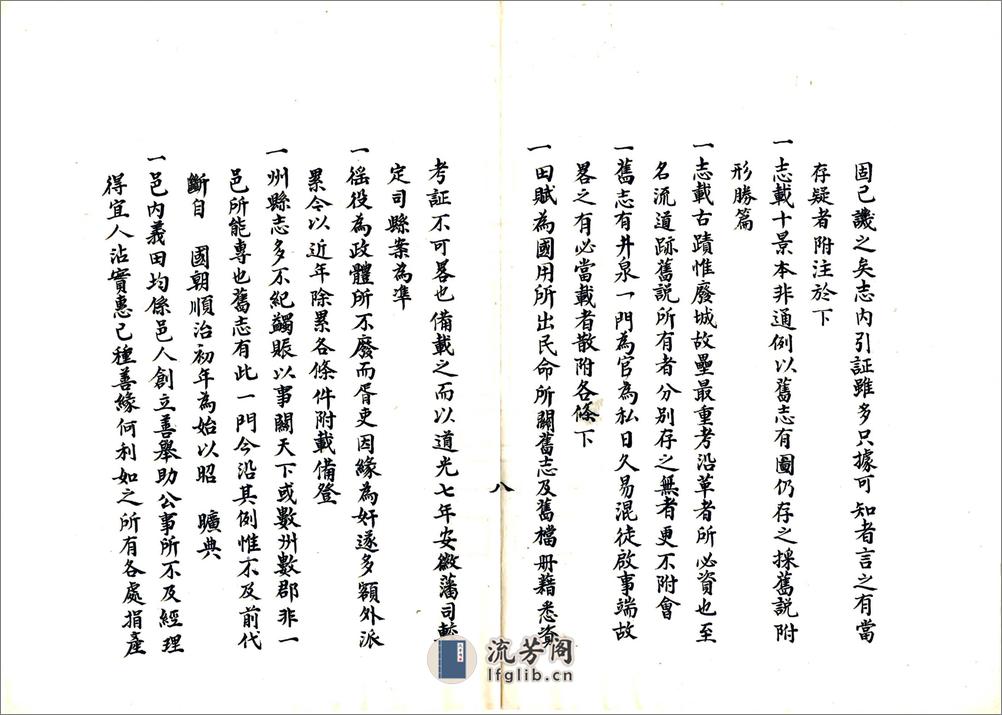 固已譏之矣志内引証雖多只據可知者言之有當
存疑者附注於下
一志載十景本非通例以舊志有圖仍存之採舊説附
形勝篇
一志載古蹟惟廢城故壘最重考沿革者所必資也至
名流遺跡舊説所有者分别存之無者更不附會
一舊志有井泉一門為官為私日久易混徒啟事端故
畧之有必當載者散附各條下
一田賦為國用所出民命所關舊志及舊檔册藉悉資
八
考証不可畧也備載之而以道光七年安徽藩司
定司縣案為準
一徭役為政體所不廢而胥吏因緣為奸遂多額外派
累今以近年除累各條件附載備登
一州縣志多不紀蠲賑以事關天下或數州數郡非一
邑所能專也舊志有此一門今沿其例惟不及前代
斷自 國朝順治初年為始以昭 曠典
一邑内義田均係邑人創立善舉助公事所不及經理
得宜人沾實惠己種善緣何利如之所有各處捐產
流芳阁
lfglib.cn